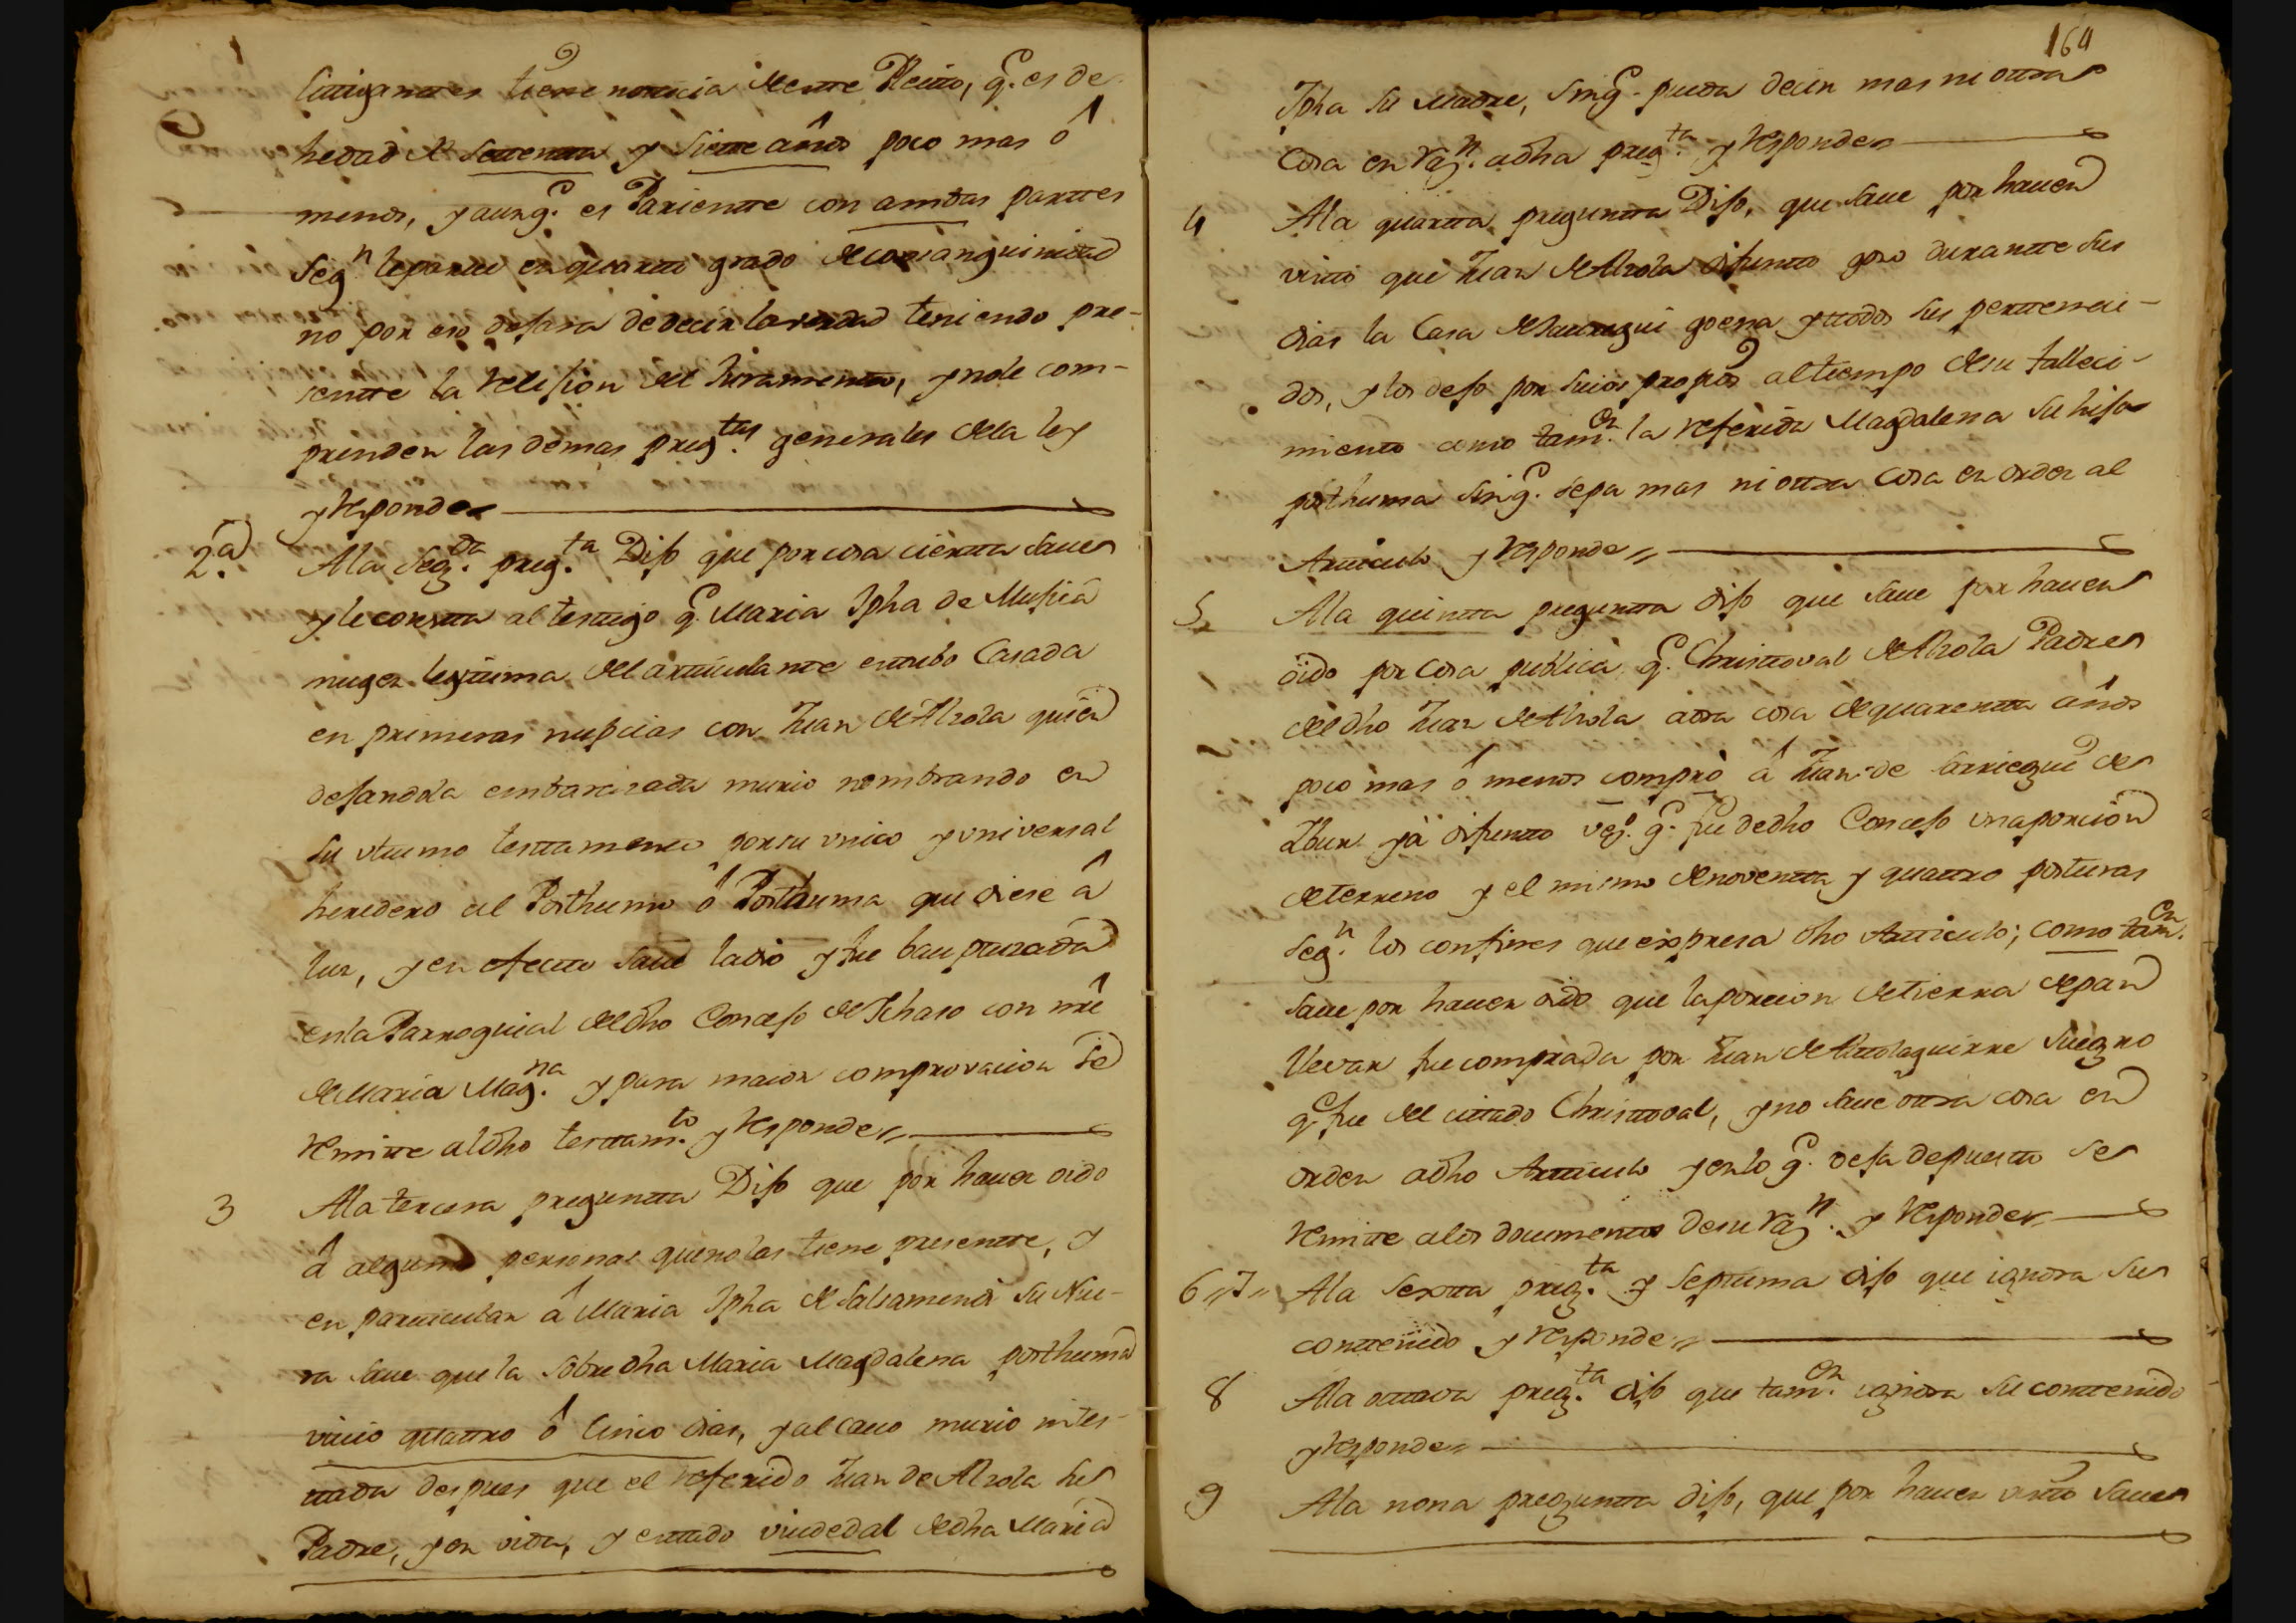 littigantes tiene noticia de este Pleito, q.e es de
hedad de settenta y siette años poco mas ó
menos, y aunq.e es Pariente con ambas parttes
seg.n le parece en quarto grado de consanguinidad
no por eso dejara de decir la verdad teniendo pre-
sente la relijion del juramento, y no le com-
prenden las demas preg.tas generales de la ley
y responde
2.a A la seg.da preg.ta Dijo que por cosa cierta save
y le consta al testigo q.e Maria Jpha de Mujica
muger legitima del articulante estubo Casada
en primeras nupcias con Juan de Alzola quien
dejandola embarazada murio nombrando en
su ultimo testamento por su unico y universal
heredero al Posthumo ó Posthuma que diese â
luz, y en efecto save la dio y fue baupttizada
en la Parroquial del dho Concejo de Ichaso con nre
de Maria Mag.na y para maior comprovacion se
remitte al dho testtam.to y responde
3 A la tercera pregunta Dijo que por haver oido
â algunas personas que no las tiene presente, y
en particular â Maria Jpha de Salsamendi su Nue-
ra save que la sobre dha Maria Magdalena posthuma
vivio quattro ô Cinco dias, y al cavo murio intes-
ttada despues que el referido Juan de Alzola su
Padre, y en vida, y esttado viudedal de dha Maria
164
Jpha su Madre, sin q.e pueda decir mas ni ottra
Cosa en raz.n a dha preg.ta y responde
4 A la quartta pregunta Dijo, que save por haver
visto que Juan de Alzola difunto gozo durantte sus
dias la Casa de Jauregui goena y todos sus pertteneci-
dos, y los dejo por suios propios al tiempo de su falleci-
miento como tam.en la referida Magdalena su hija
posthuma sin q.e sepa mas ni ottra Cosa en orden al
Articulo y responde
5 A la quintta pregunta dijo que save por haver
oido por Cosa publica q.e Christtoval de Alzola Padre
del dho Juan de Alzola aora cosa de quarentta años
poco mas ô menos comprò â Juan de Arriegui de
Ybur ya difunto vez.o q.e fue de dho Concejo una porcion
de terreno y el mismo de noventta y quattro posturas
seg.n los confines que expresa dho Articulo; como tam.en
save por haver oido que la porcion de tierra de pan
llevar fue comprada por Juan de Arttolaguirre suegro
q.e fue del cittado Christtoval, y no save ottra cosa en
orden a dho Articulo y en lo q.e deja depuestto se
remitte a los documentos de su raz.n y responde
6,,7,, A la sextta preg.ta y septtima dijo que ignora sus
conttenido y responde
8 A la ottava preg.ta dijo que tam.en ignora su conttenido
y responde
9 A la nona pregunta dijo, que por haver visto save